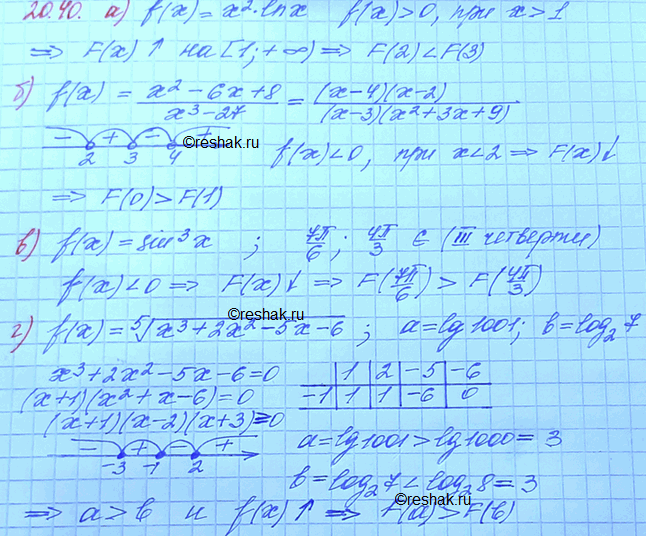 20.40. а) f(x) = x² · ln x   f(x) > 0, при x > 1
⇒ F(x) ↑ на [1; +∞) ⇒ F(2) < F(3)
б) f(x) = (x² − 6x + 8)/(x³ − 27) = (x−4)(x−2)/((x−3)(x²+3x+9))
− + − +
2 3 4
©reshak.ru
f(x) < 0, при x < 2 ⇒ F(x) ↓
⇒ F(0) > F(1)
в) f(x) = sin³x ; 7π/6 ; 4π/3 ∈ (III четверти)
f(x) < 0 ⇒ F(x) ↓ ⇒ F(7π/6) > F(4π/3)
©reshak.ru
г) f(x) = ⁵√(x³ + 2x² − 5x − 6) ; a = lg 1001; b = log₂ 7
x³ + 2x² − 5x − 6 = 0
1 2 −5 −6
(x+1)(x² + x − 6) = 0
−1 1 1 −6 0
(x+1)(x−2)(x+3) = 0
− + − +
−3 −1 2
a = lg 1001 > lg 1000 = 3
b = log₂ 7 < log₂ 8 = 3
©reshak.ru
⇒ a > b и f(x) ↑ ⇒ F(a) > F(b)